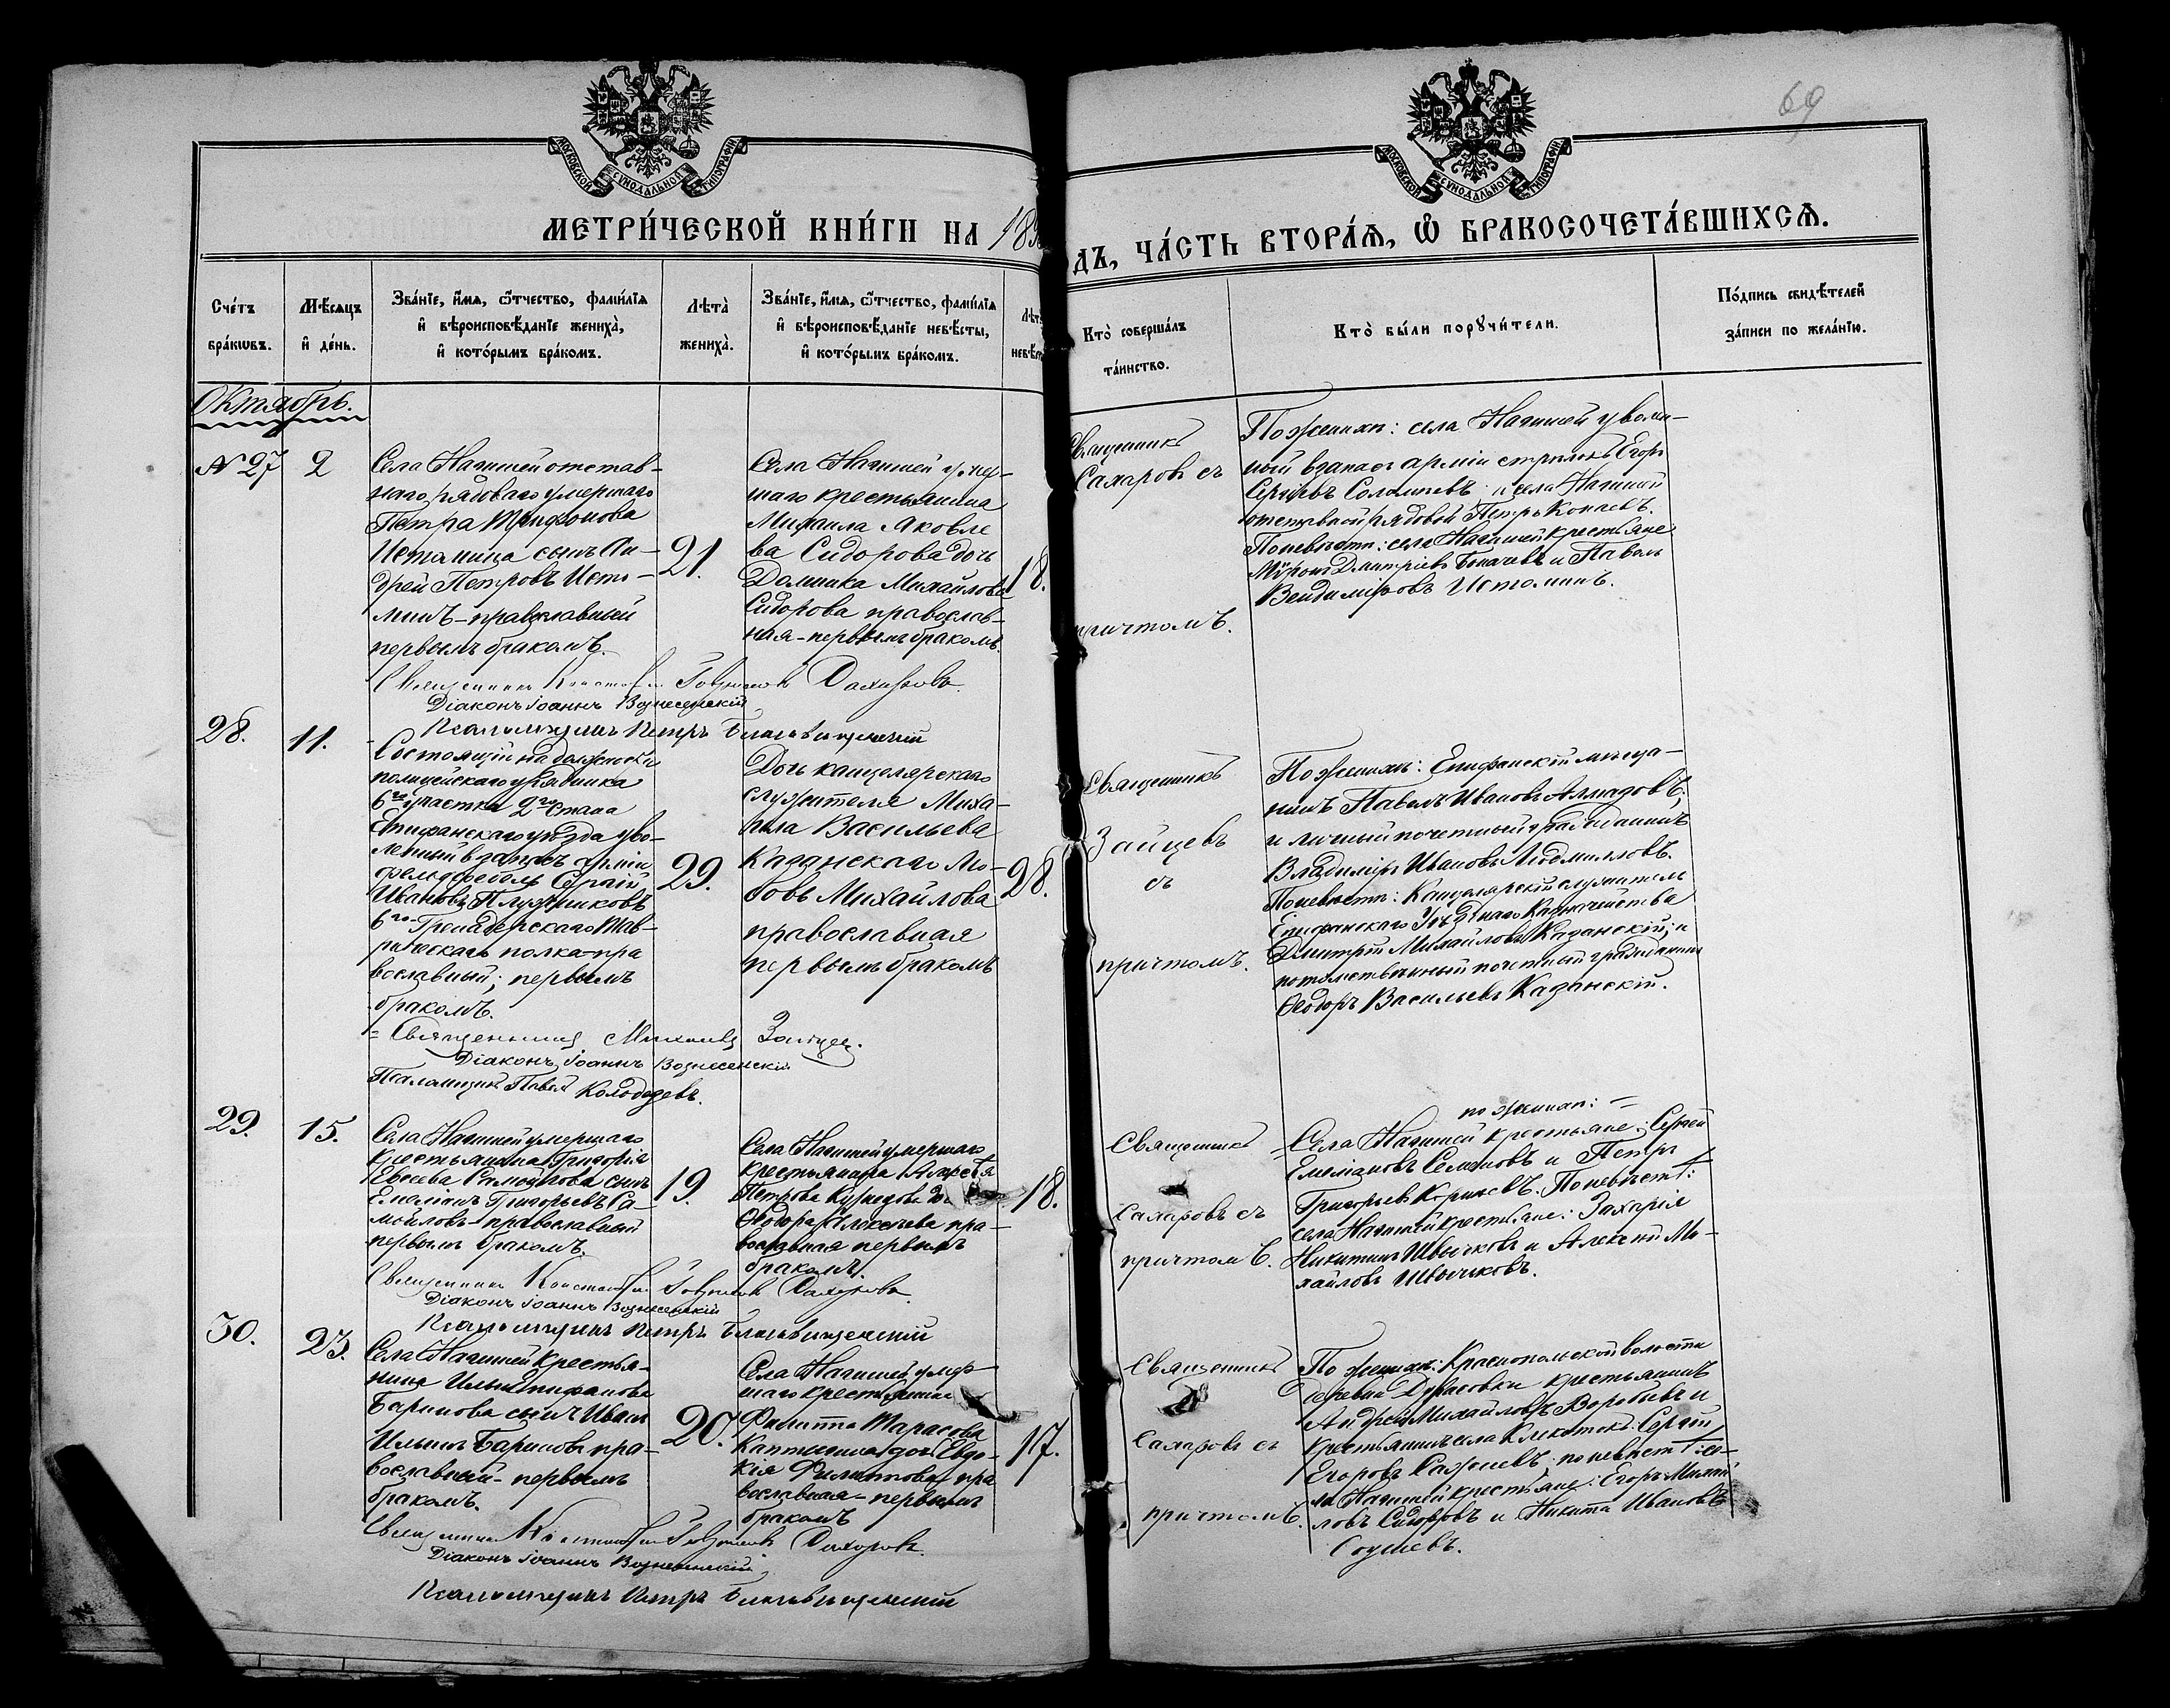 69
МОСКОВСКОЙ СѴНОДАЛЬНОЙ ТИПОГРАФІИ
МОСКОВСКОЙ СѴНОДАЛЬНОЙ ТИПОГРАФІИ
МЕТРИ́ЧЕСКОЙ КНИ́ГИ НА 189
ДЪ, ЧА́СТЬ ВТОРА́Ѧ, Ѽ БРАКОСОЧЕТА́ВШИХСѦ.
Сче́тъ
бра́кѡвъ.
Мѣ́сѧцъ
и҆ де́нь.
Зва́нїе, и҆́мѧ, ѻ҆́тчество, фами́лїѧ
и҆ вѣроисповѣ́данїе жениха̀,
и҆ кото́рымъ бра́комъ.
Лѣта̀
жениха̀.
Зва́нїе, и҆́мѧ, ѻ҆́тчество, фами́лїѧ
и҆ вѣроисповѣ́данїе невѣ́сты,
и҆ кото́рымъ бра́комъ.
Лѣт
невѣ́ст
Кто̀ соверша́лъ
та́инство.
Кто̀ бы́ли порꙋчи́тели.
По́дпись свидѣ́телей
за́писи по жела́нїю.
Октябрь.
№ 27
2
Села Нагишей отстав-
наго рядоваго умершаго
Петра Трифонова
Истомина сынъ Ан-
дрей Петровъ Исто-
минъ - православный
первымъ бракомъ.
21.
Села Нагишей умер-
шаго крестьянина
Михаила Яковле
ва Сидорова дочь
Домника Михайлова
Сидорова православ-
ная - первымъ бракомъ.
18.
Священникъ
Сахаровъ съ
причтомъ.
По женихѣ: села Нагишей уволен-
ный въ запасъ арміи стрѣлокъ Егоръ
Сергѣевъ и села Нагишей
отставной рядовой Петръ Копаевъ.
По невѣстѣ: села Нагишей крестьяне
Мѵронъ Дмитріевъ и Павелъ
Истоминъ.
Священникъ Сахаровъ.
Діаконъ Іоаннъ Вознесенскій
Псаломщикъ Петръ Благовѣщенскій
28.
11.
Состоящій на должности
полицейскаго урядника
6го участка 2го Стана
Епифанскаго уѣзда уво-
ленный въ запасъ арміи
фельдфебель Сергій
Ивановъ Плужниковъ
6го Гренадерскаго Тав-
рическаго полка - пра
вославный; первымъ
бракомъ.
29.
Дочь канцелярскаго
служителя Миха-
ила Васильева
Казанскаго Лю-
бовь Михайлова
православная
первымъ бракомъ
28.
Священникъ
Зайцевъ
съ
причтомъ.
По женихѣ: Епифанскій мѣща-
нинъ Павелъ Ивановъ Алмазовъ;
и личный почетный гражданинъ
Владиміръ Ивановъ Людмиловъ.
По невѣстѣ: Канцелярскій служитель
Епифанскаго Уѣзднаго Казначейства
Дмитрій Михайловъ Казанскій; и
потомственный почетный гражданинъ
Ѳеодоръ Васильевъ Казанскій.
Священникъ Михаилъ Зайцев.
Діаконъ Іоаннъ Вознесенскій
Псаломщикъ Павелъ Колодезевъ.
29.
15.
Села Нагишей умершаго
крестьянина Григорія
Евсеева Самойлова сынъ
Емеліанъ Григорьевъ Са-
мойловъ - православный
первымъ бракомъ.
19.
Села Нагишей умершаго
крестьянина Алексѣя
Петрова
Ѳеодора Алексѣева пра-
вославная первымъ
бракомъ.
18.
Священникъ
Сахаровъ съ
причтомъ.
по женихѣ:
Села Нагишей крестьяне: Сергій
Емеліановъ Семеновъ и Петръ
Григорьевъ По невѣстѣ:
села Нагишей крестьяне: Захарія
Никитинъ Швычковъ и Алексѣй Ми-
хайловъ Швычковъ.
Священникъ Сахаровъ
Діаконъ Іоаннъ Вознесенскій
Псаломщикъ Петръ Благовѣщенскій
30.
23.
Села Нагишей крестья-
нина Ильи Епифанова
Баринова сынъ Иванъ
Ильинъ Бариновъ пра-
вославный - первымъ
бракомъ.
20.
Села Нагишей умер-
шаго крестьянина
Филиппа Тарасова
дочь Евдо-
кія Филиппова пра
вославная - первымъ
бракомъ
17.
Священникъ
Сахаровъ съ
причтомъ.
По женихѣ: Краснопольской волости
деревни крестьянинъ
Андрей Михайловъ Воробьевъ и
крестьянинъ села Сергій
Егоровъ по невѣстѣ: се-
ла Нагишей крестьяне: Егоръ Михай-
ловъ Сидоровъ и Никита Ивановъ
Священникъ Сахаровъ.
Діаконъ Іоаннъ Вознесенскій
Псаломщикъ Петръ Благовѣщенскій